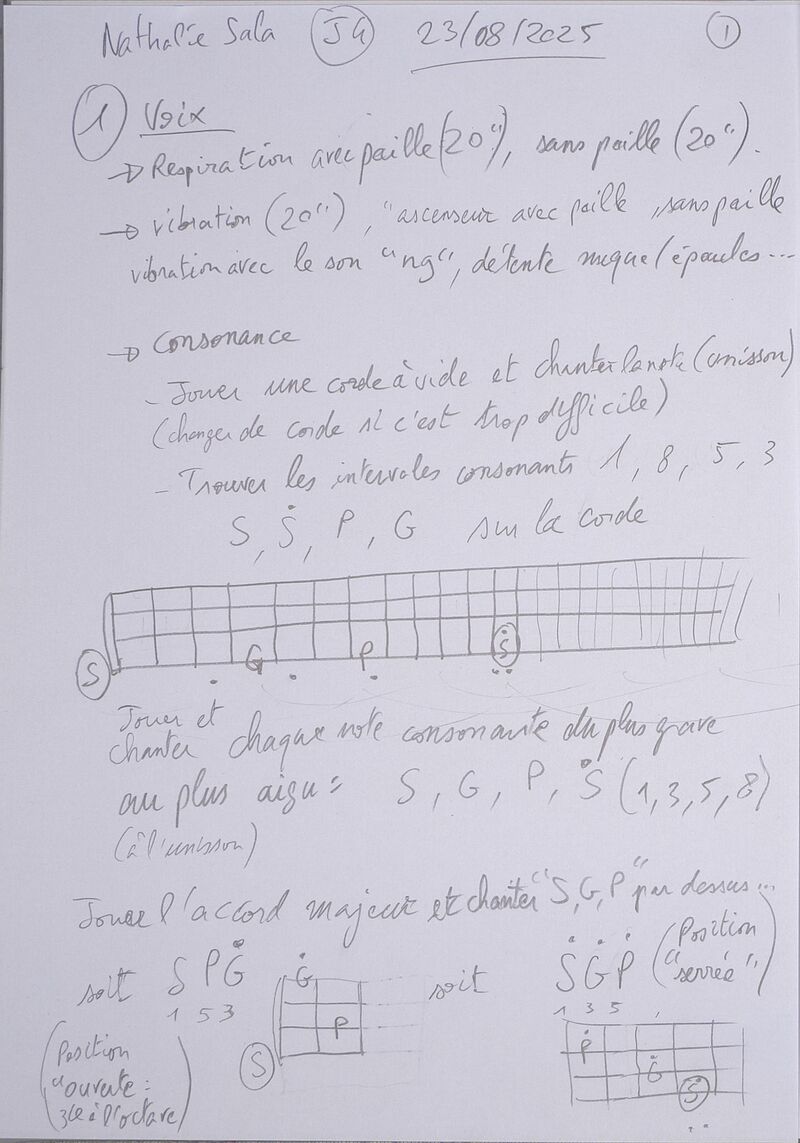 Nathalie Sala JG 23/08/2025 1
1 Voix
→ Respiration avec paille (20"), sans paille (20").
→ vibration (20"), "ascenseur avec paille, sans paille
vibration avec le son "ng", détente nuque/épaules...
→ Consonance
- Jouer une corde à vide et chanter la note (unisson)
(changer de corde si c'est trop difficile)
- Trouver les intervales consonants 1, 8, 5, 3
S, Ṡ, P, G sur la corde
S G P Ṡ
Jouer et
chanter chaque note consonante du plus grave
au plus aigu = S, G, P, Ṡ (1,3,5,8)
(à l'unisson)
Jouer l'accord majeur et chanter "S, G, P" par dessus...
soit S P Ġ soit Ṡ Ġ Ṗ (Position "serrée")
1 5 3 1 3 5
Ġ
P
S
(Position
"ouverte :
3ce à l'octave)
Ṗ
Ġ
Ṡ